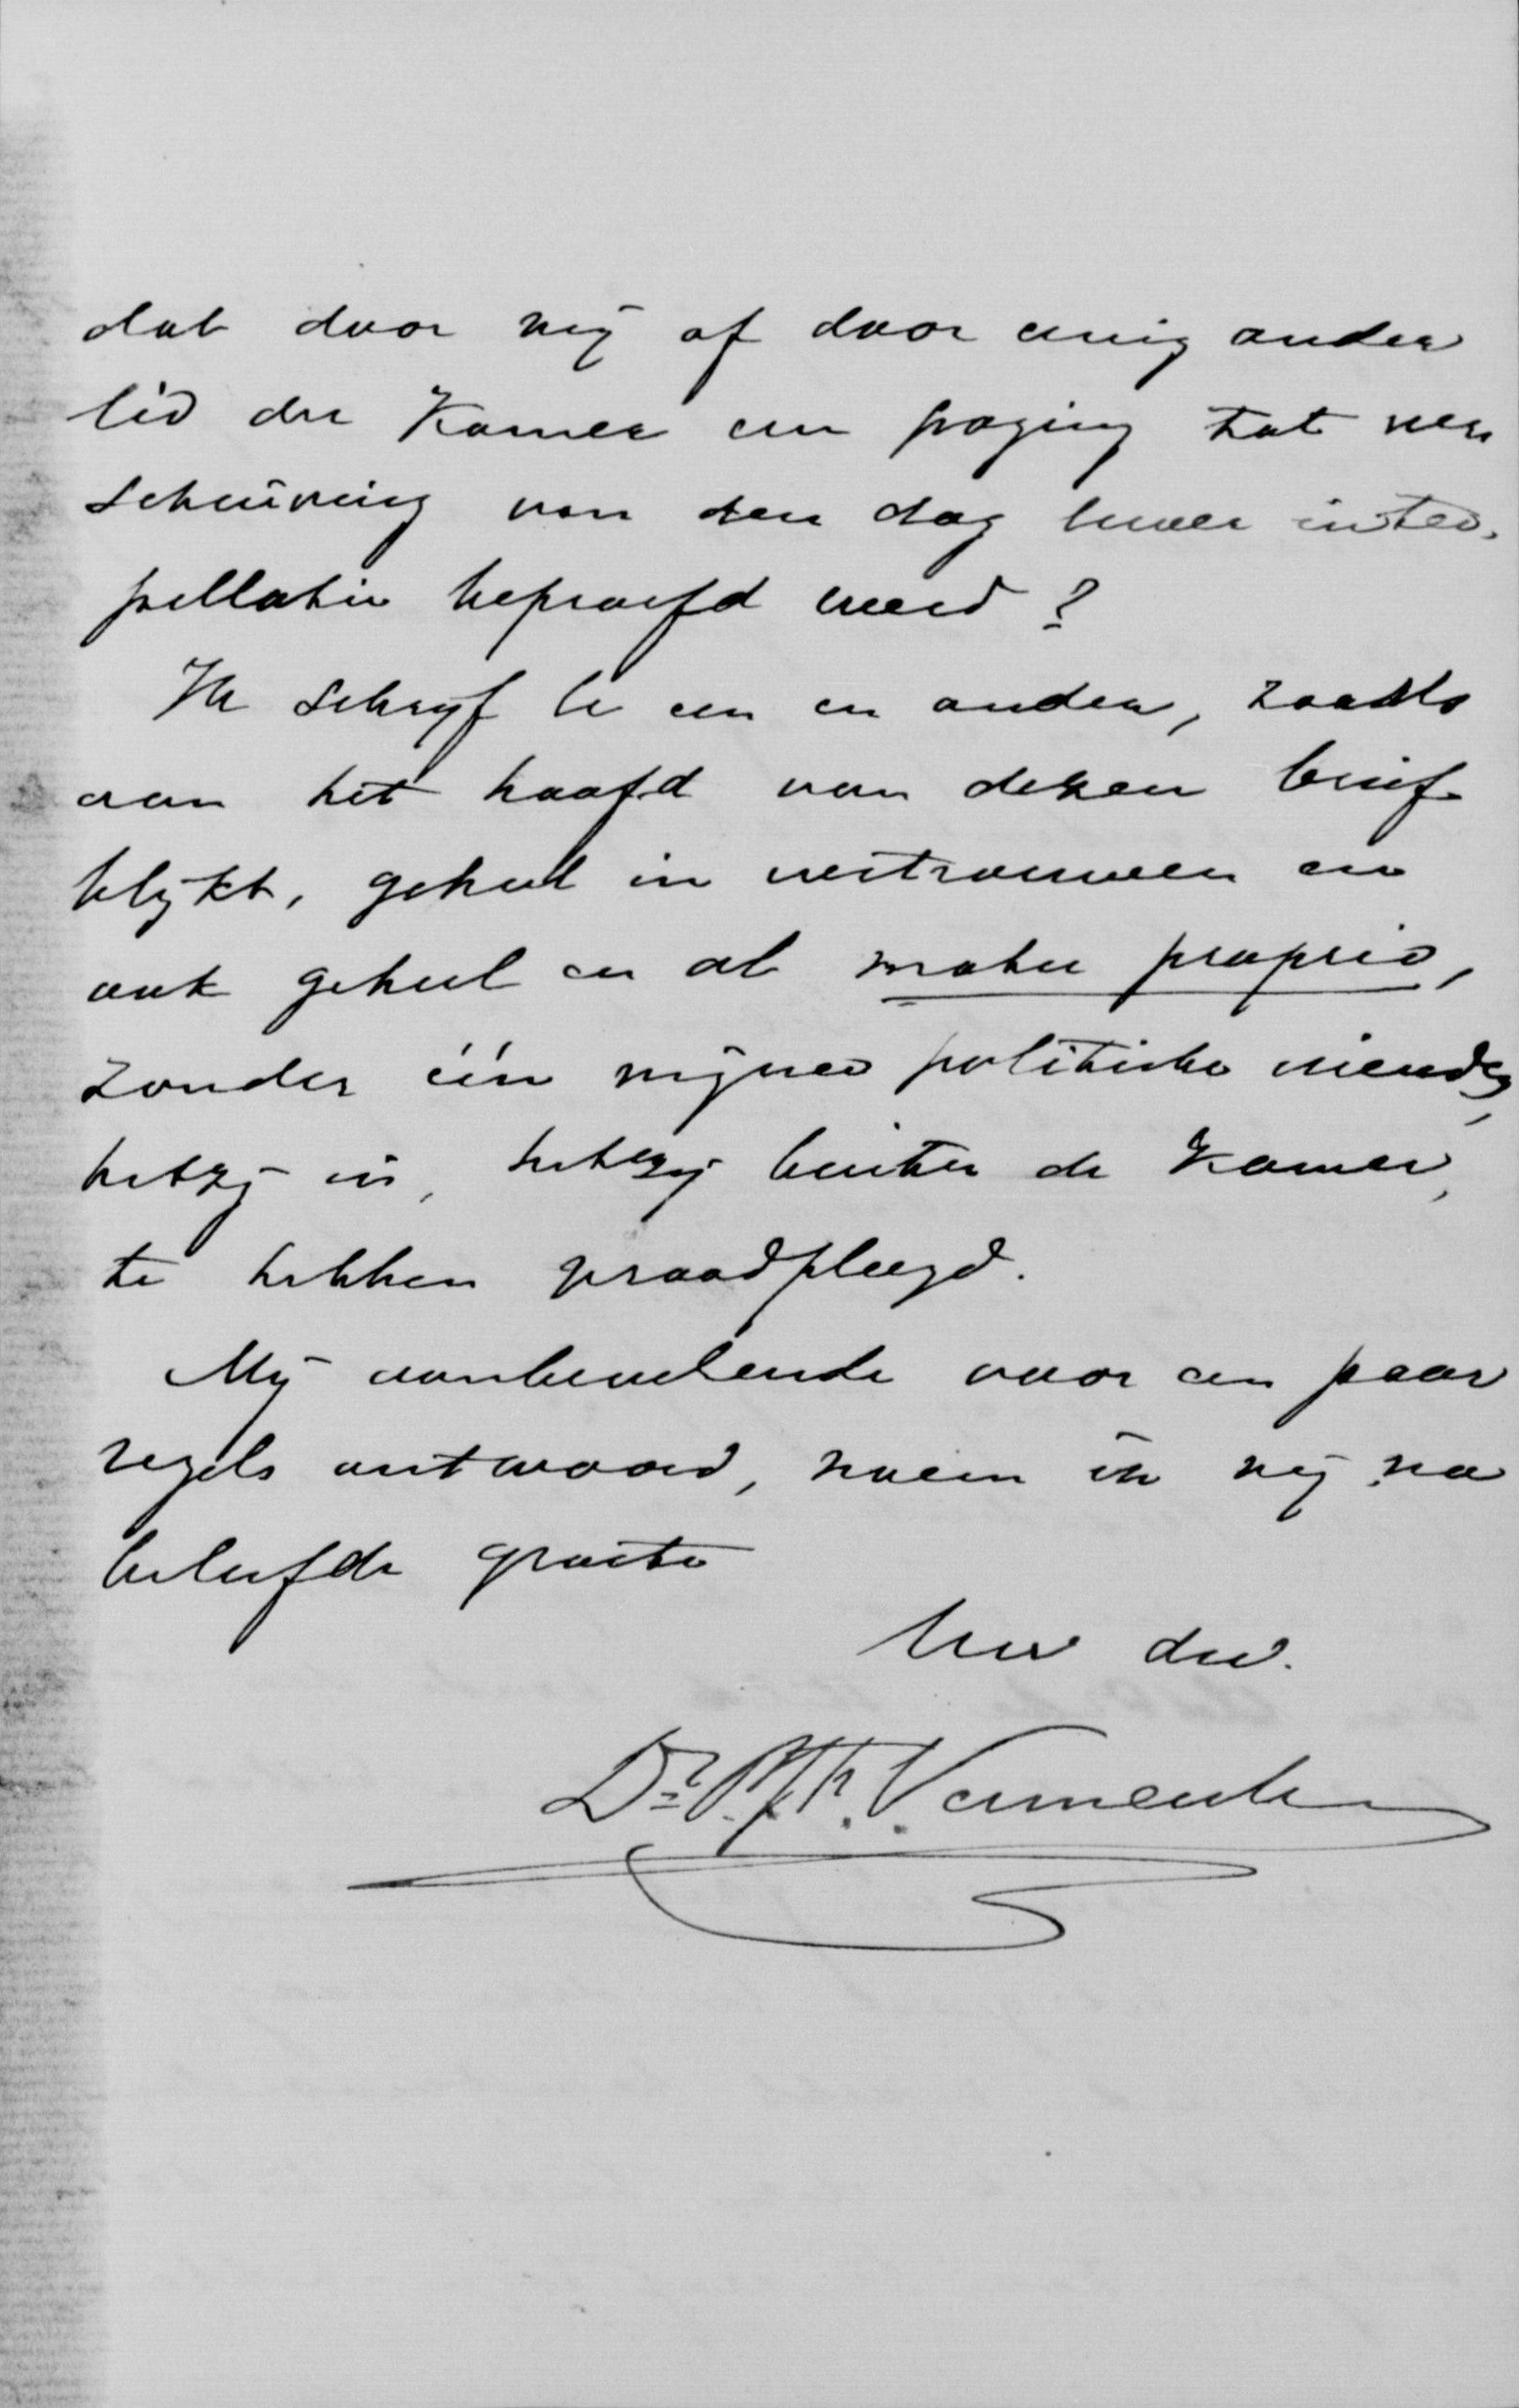 dat door mij of door eenig ander
lid der Kamer een poging tot ver
schuiving van den dag Uwer inter-
pellatie beproefd werd?
Ik schrijf U een en ander, zooals
aan het hoofd van dezen brief
blijkt, geheel in vertrouwen en
ook geheel en al motu proprio,
zonder één mijner politieke vrienden,
hetzij in, hetzij buiten de Kamer,
te hebben geraadpleegd.
Mij aanbevelende voor een paar
regels antwoord, noem ik mij na
beleefde groete
Uw dw.
Dr. P. J. Th. Vermeulen